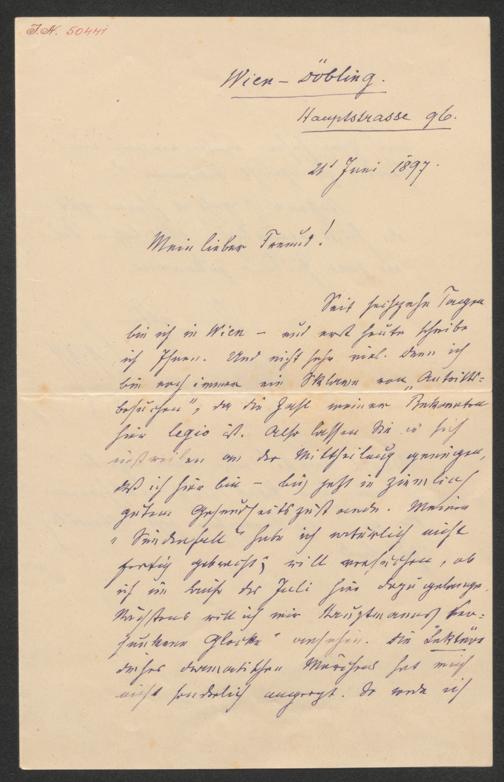 J.N. 50441
Wien – Döbling.
Hauptstrasse 96.
21t Juni 1897.
Mein lieber Freund!
Seit sechzehn Tagen
bin ich in Wien – und erst heute schreibe
ich Ihnen. Und nicht sehr viel. Denn ich
bin noch immer ein Sklave von „Antritts-
besuchen", da die Zahl meiner Bekannten
hier legio ist. Also lassen Sie sich
einstweilen an der Mittheilung genügen,
daß ich hier bin – bis jetzt in ziemlich
gutem Gesundheitszustande. Meinen
„Sündenfall" habe ich natürlich nicht
fertig gebracht; will versuchen, ob
ich im Laufe des Juli hier dazu gelange.
Nächstens will ich mir Hauptmanns „Ver-
sunkene Glocke" ansehen. Die Lektüre
dieses dramatischen Märchens hat mich
nicht sonderlich angeregt. So werde ich